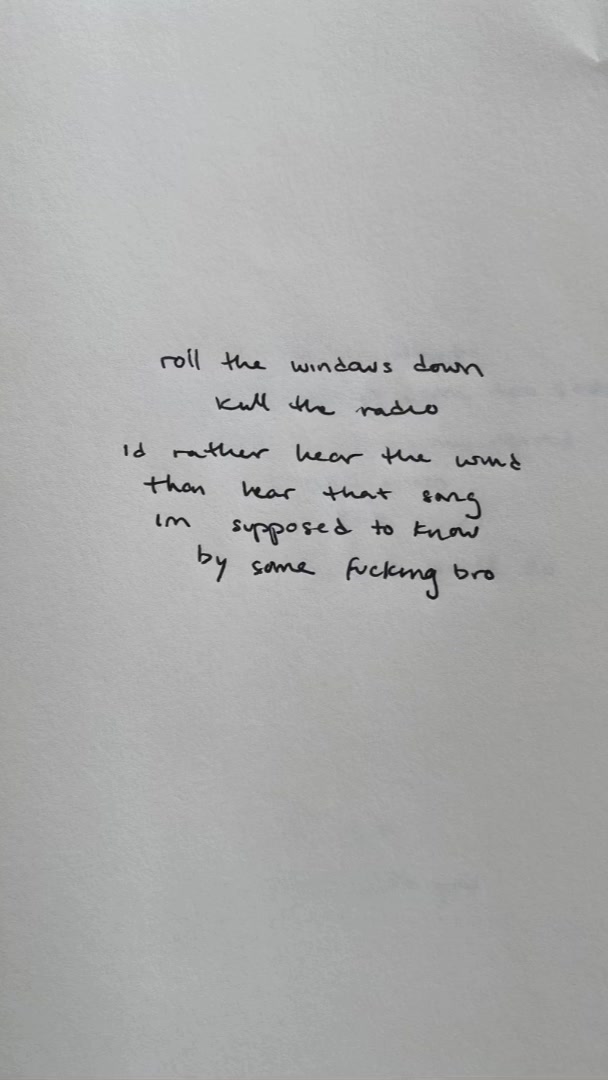 roll the windows down
kill the radio
id rather hear the wind
than hear that song
im supposed to know
by some fucking bro